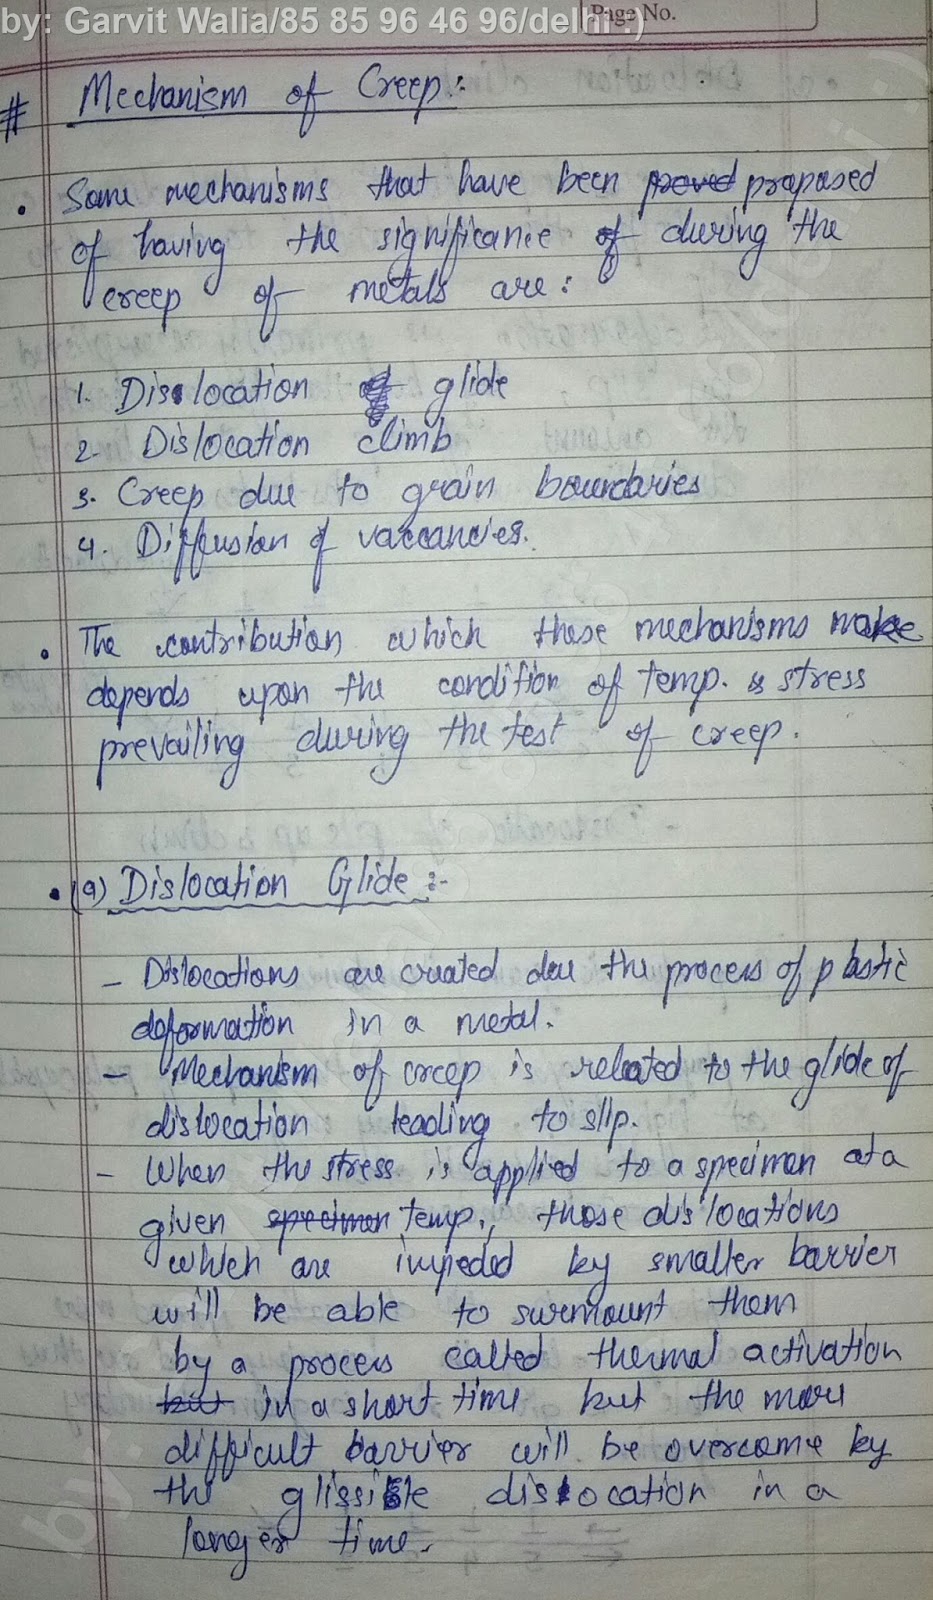 by: Garvit Walia/85 85 96 46 96/delhi :)
Page No.
# Mechanism of Creep:-
• Some mechanisms that have been proved proposed
of having the significance of during the
creep of metals are:
1. Dislocation glide
2. Dislocation climb
3. Creep due to grain boundaries
4. Diffusion of vaccancies.
• The contribution which these mechanisms make
depends upon the condition of temp. & stress
prevailing during the test of creep.
• (a) Dislocation Glide :-
- Dislocations are created due the process of plastic
deformation in a metal.
- Mechanism of creep is related to the glide of
dislocation leading to slip.
- When the stress is applied to a specimen at a
given specimen temp., those dislocations
which are impeded by smaller barrier
will be able to surmount them
by a process called thermal activation
but in a short time but the more
difficult barrier will be overcome by
the glissible dislocation in a
longer time.